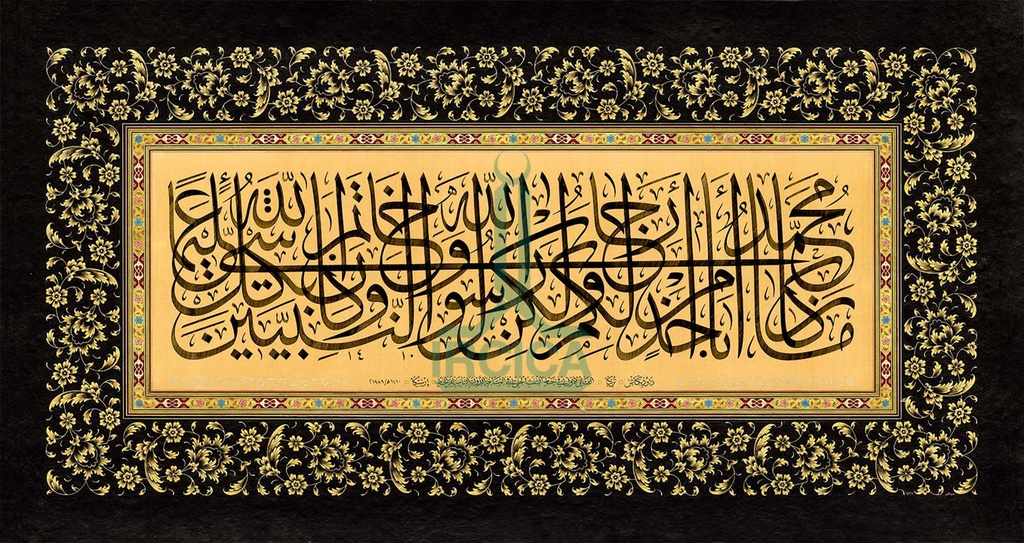 مَا كَانَ مُحَمَّدٌ أَبَا أَحَدٍ مِنْ رِجَالِكُمْ وَلَكِنْ رَسُولَ اللَّهِ وَخَاتَمَ النَّبِيِّينَ وَكَانَ اللَّهُ بِكُلِّ شَيْءٍ عَلِيمًا
IRCICA